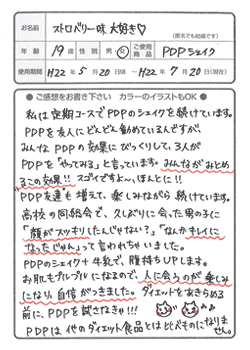 お名前
ストロベリー味 大好き♡
(匿名でも結構です)
年齢 19歳 性別 男・女 ご使用商品 PDPシェイク
使用期間 H22年5月20日頃 〜 H22年7月20日(現在)
●ご感想をお書き下さい カラーのイラストもOK●
私は定期コースでPDPのシェイクを続けています。
PDPを友人にどんどん勧めているんですが、
みんなPDPの効果にびっくりして、3人が
PDPを"やってみる"と言っています。みんながみとめ
るこの効果!! スゴイですよ〜、ほんとに!!
PDP友達も増えて、楽しみながら続けています。
高校の同窓会で、久しぶりに会った男の子に
「顔がスッキリしたんじゃない?」「なんかキレイに
なったじゃん」って言われちゃいました。
PDPのシェイク+牛乳で、腹持ちUPします。
お肌もプルプルになるので、人に会うのが楽しみ
になり、自信がつきました。ダイエットをあきらめる
前に、PDPを試さなきゃ!!!
PDPは他のダイエット食品とは比べものになりま
せん。